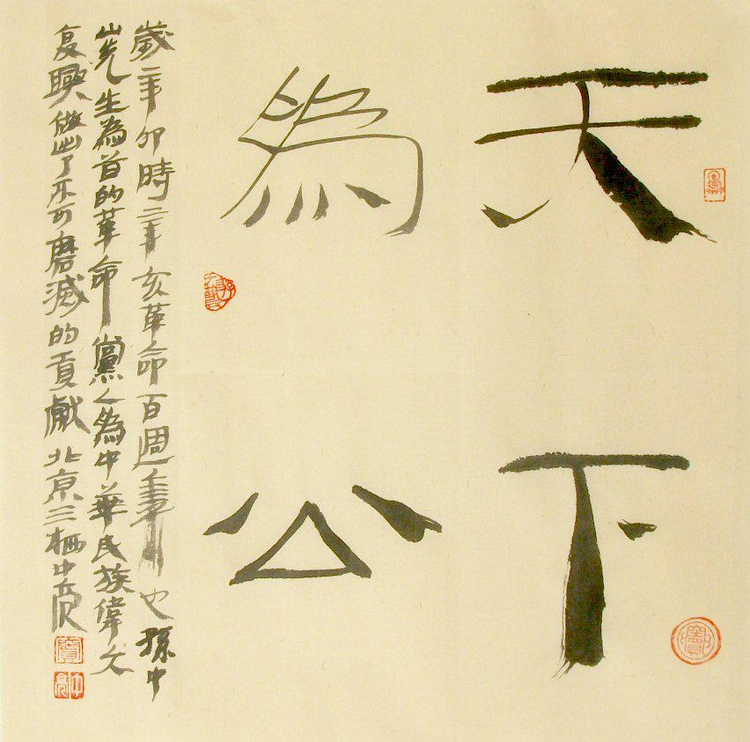 天下
為公
歲辛卯時辛亥革命百週年也孫中
山先生為首的革命黨人為中華民族偉大
复興做出了不可磨滅的貢獻北京三栖中亮